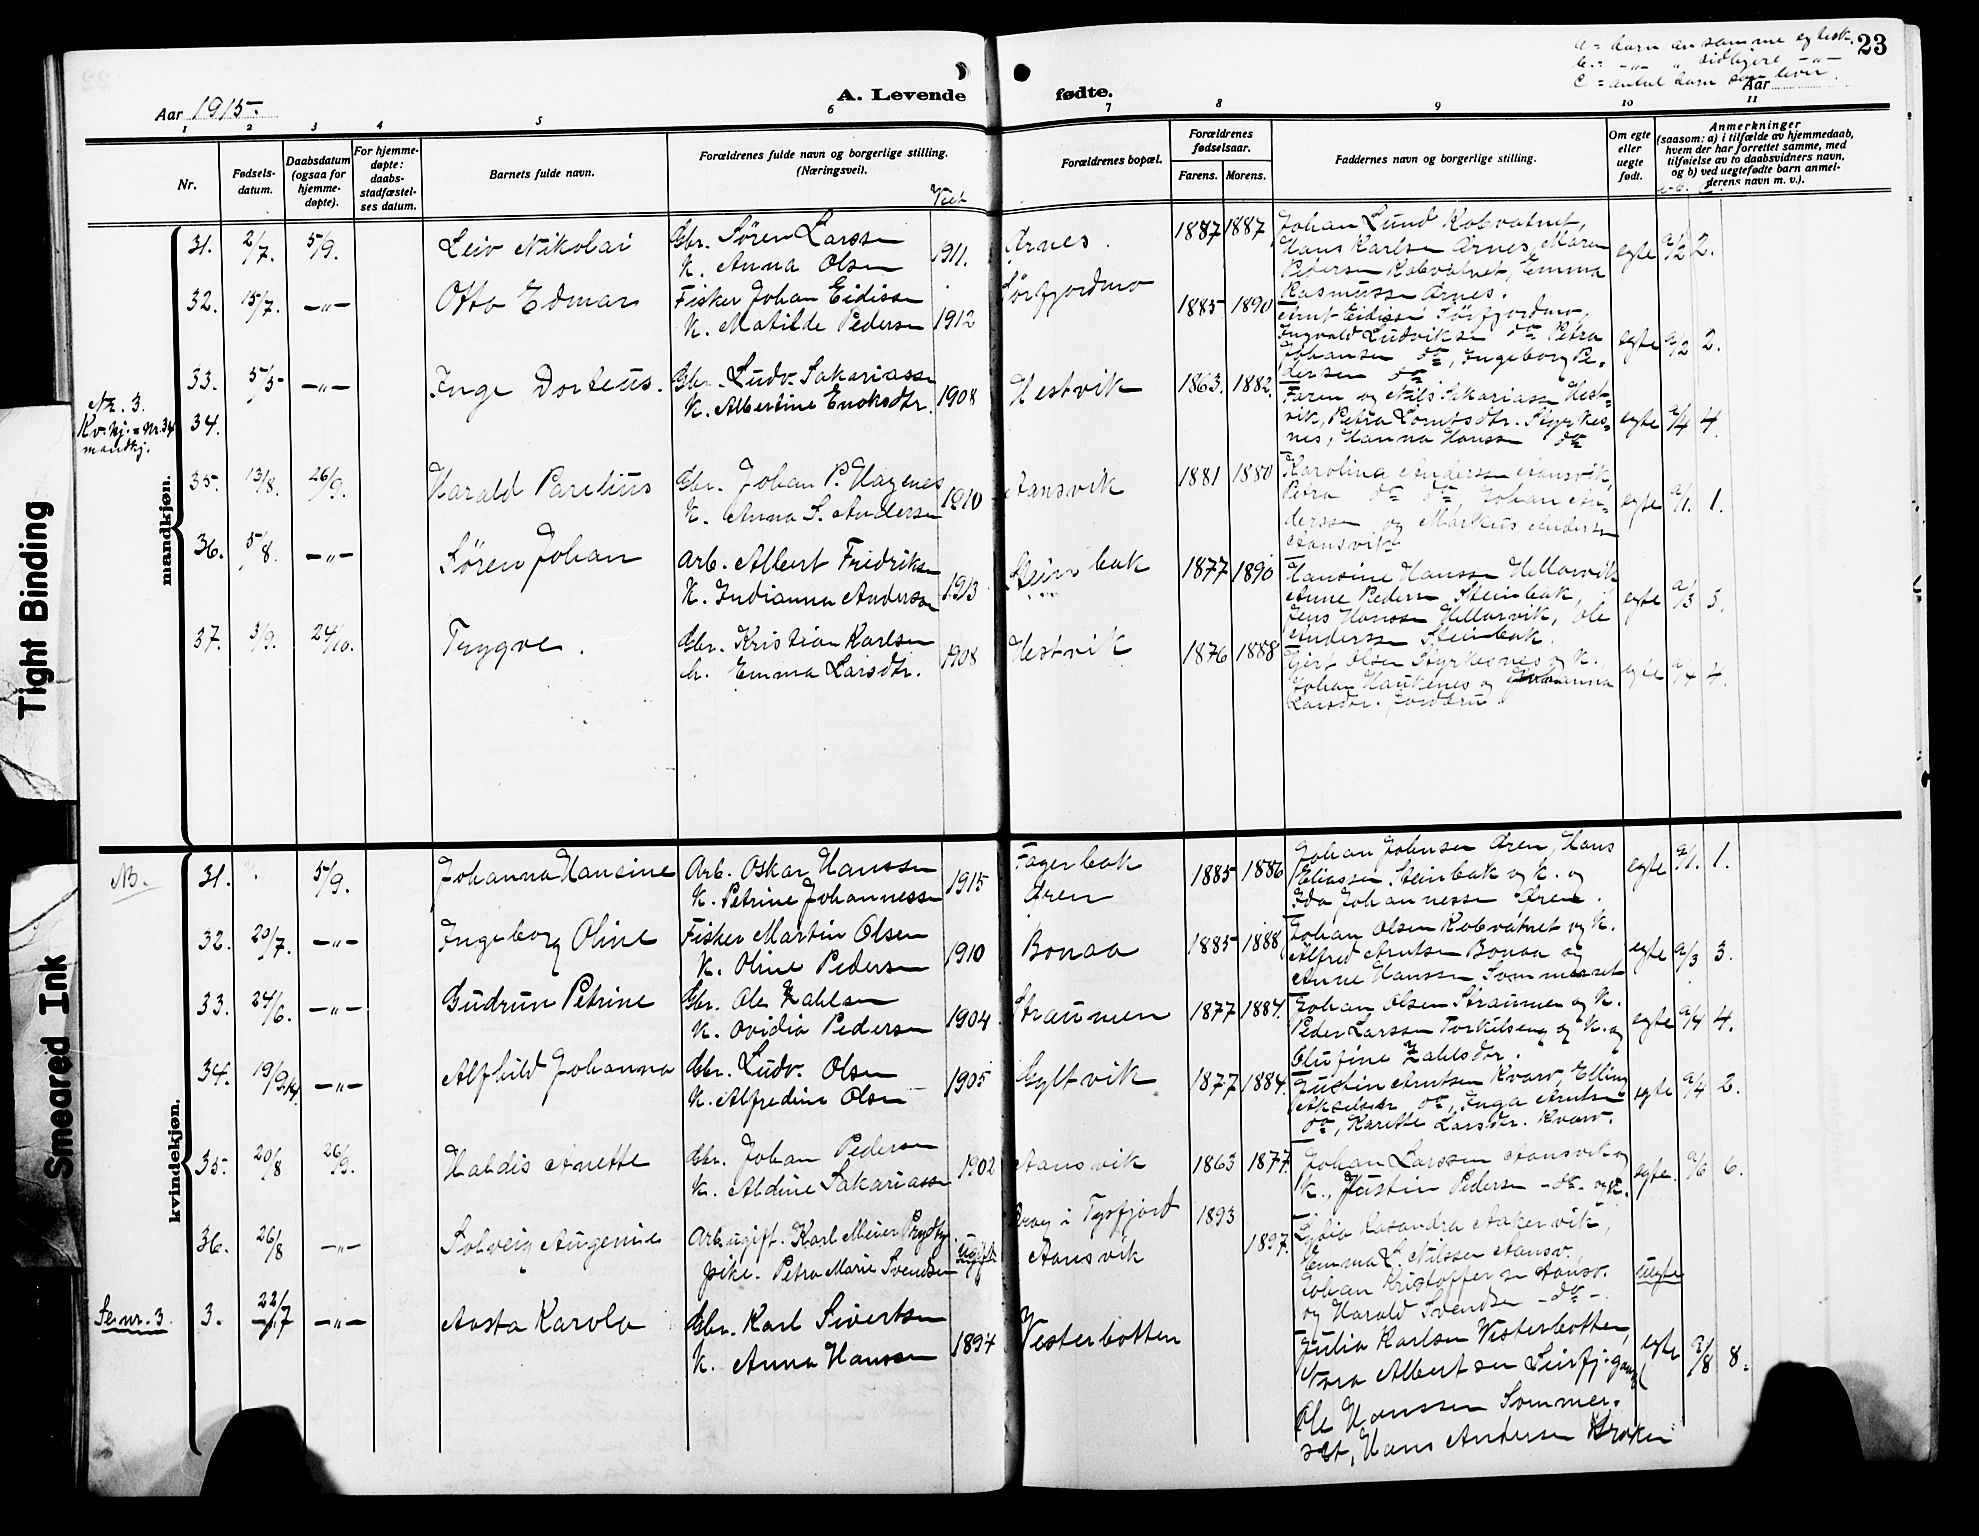 23
a = barn av samme egtesk.
b = -"- " tidligere -"-
c = antal barn som lever.
Aar 1915.
A. Levende
fødte.
Aar
1 2 3 4 5 6 7 8 9 10 11
Nr.
Fødsels-
datum.
Daabsdatum
(ogsaa for
hjemme-
døpte).
For hjemme-
døpte:
daabs-
stadfæstel-
ses datum.
Barnets fulde navn.
Forældrenes fulde navn og borgerlige stilling.
(Næringsvei).
Viet
Forældrenes bopæl.
Forældrenes
fødselsaar.
Farens. Morens.
Faddernes navn og borgerlige stilling.
Om egte
eller
uegte
født.
Anmerkninger
(saasom: a) i tilfælde av hjemmedaab,
hvem der har forrettet samme, med
tilføielse av to daabsvidners navn,
og b) ved uegtefødte barn anmel-
derens navn m. v.).
mandkjøn.
31. 2/7. 5/9. Leiv Nikolai
Gbr. Søren Larssen
K. Anna Olsen
1911. Ørnes. 1887 1887
Johan Lund Kobvatnet,
Hans Karlsen Ørnes, Maren
Pedersen Kobvatnet, Emma
Rasmussen Ørnes.
egte a/2 2.
32. 15/7. -"- Otto Edmar
Fisker Johan Eidissen
K. Matilde Pedersen
1912 Sørfjordmo 1885 1890
Arnt Eidissen Sørfjordmo,
Ingvald Ludviksen do Petra
Johansen do, Ingeborg Pe-
dersen do
egte a/2 2.
33. 5/5 -"- Inge Dorteus.
Gbr. Ludv. Sakariassen
K. Albertine Enoksdtr.
1908 Hestvik 1863. 1882.
Faren og Nils Sakariassen Hest-
vik, Petra Lorntsdtr. Styrkes-
nes, Hanna Hanssen do
egte a/4 4.
Nr. 3.
Kv. kj. = Nr. 34
mandkj.
34.
35. 13/8. 26/9. Harald Parelius
Gbr. Johan P. Hagenes
K. Anna S. Andersen
1910 Aansvik 1881 1880
Karolina Andersen Aansvik,
Petra do do Johan An-
derssen og Markus Andersen
Aansvik
egte a/1. 1.
36. 5/8. -"- Søren Johan
Arb. Albert Fredriksen
K. Indianna Andersen
1913 Steinbak 1877 1890
Hansine Hanssen Hellarvik
Anne Pedersen Steinbak,
Jens Hanssen Hellarvik, Ole
Anderssen Steinbak.
egte a/3 3.
37. 3/9. 24/10. Trygve.
Gbr. Kristian Karlsen
h. Emma Larsdtr.
1908 Hestvik 1876 1888
Gjert Olsen Styrkesnes og K.
Johan Haukenes og Johanna
Larsdtr. Jordbru.
egte a/4 4.
kvindekjøn.
NB. 31. 5/9. Johanna Hansine
Arb. Oskar Hanssen
K. Petrine Johannessen
1915 Fagerbak
Øren
1885 1886
Johan Johnsen Øren, Hans
Eliassen Steinbak og K. og
Ida Johannessen Øren.
egte a/1. 1.
32. 20/7. -"- Ingeborg Oline
Fisker Martin Olsen
K. Oline Pedersen
1910 Bonaa 1885 1888
Johan Olsen Kobvatnet og K.
Alfred Arntsen Bonaa og
Anne Hanssen Sommerset
egte a/3 3.
33. 24/6. -"- Gudrun Petrine
Gbr. Ole Zahlsen
K. Ovidia Pedersen
1904 Straumen 1877 1884.
Johan Olsen Straumen og K.
Peder Larssen Torkilseng og K. og
Olufine Zahlsdtr.
egte a/4 4.
34. 19/9.14. -"- Alfhild Johanna
Gbr. Ludv. Olsen
K. Alfredine Olsen
1905 Gyltvik 1877 1884.
Justin Arntsen Kvarv, Elling
Akselsen do, Inga Arntsen
do, Karette Larsdtr. Kvarv.
egte a/4 2.
35. 20/8 26/9. Haldis Anette
Gbr. Johan Pedersen
K. Aldine Sakariassen
1902 Aansvik 1863 1877.
Johan Larssen Aansvik og
K., Justin Pedersen -do- og K.
egte. a/6 6.
36. 26/8 -"- Solveig Augenie
Arb. ugift. Karl Meier Prydty
pike. Petra Marie Svendsen
ugift i Tysfjord
Aansvik
1893
1897.
Lydia Kasandra Aakervik,
Emma L. Nilssen Aansv.,
Johan Kristoffersen Aansv.
og Harald Svendsen -do-
uegte
Se nr. 3 3. 22/7 -"- Aasta Karola
Gbr. Karl Sivertsen
K. Anna Hanssen
1894 Vesterbotten
Julia Karlsen Vesterbotten,
Nora Albertsen Leirfj.
Ole Hanssen Sommer-
set, Hans Andersen
egte a/8 8.
Tight Binding
Smeared Ink